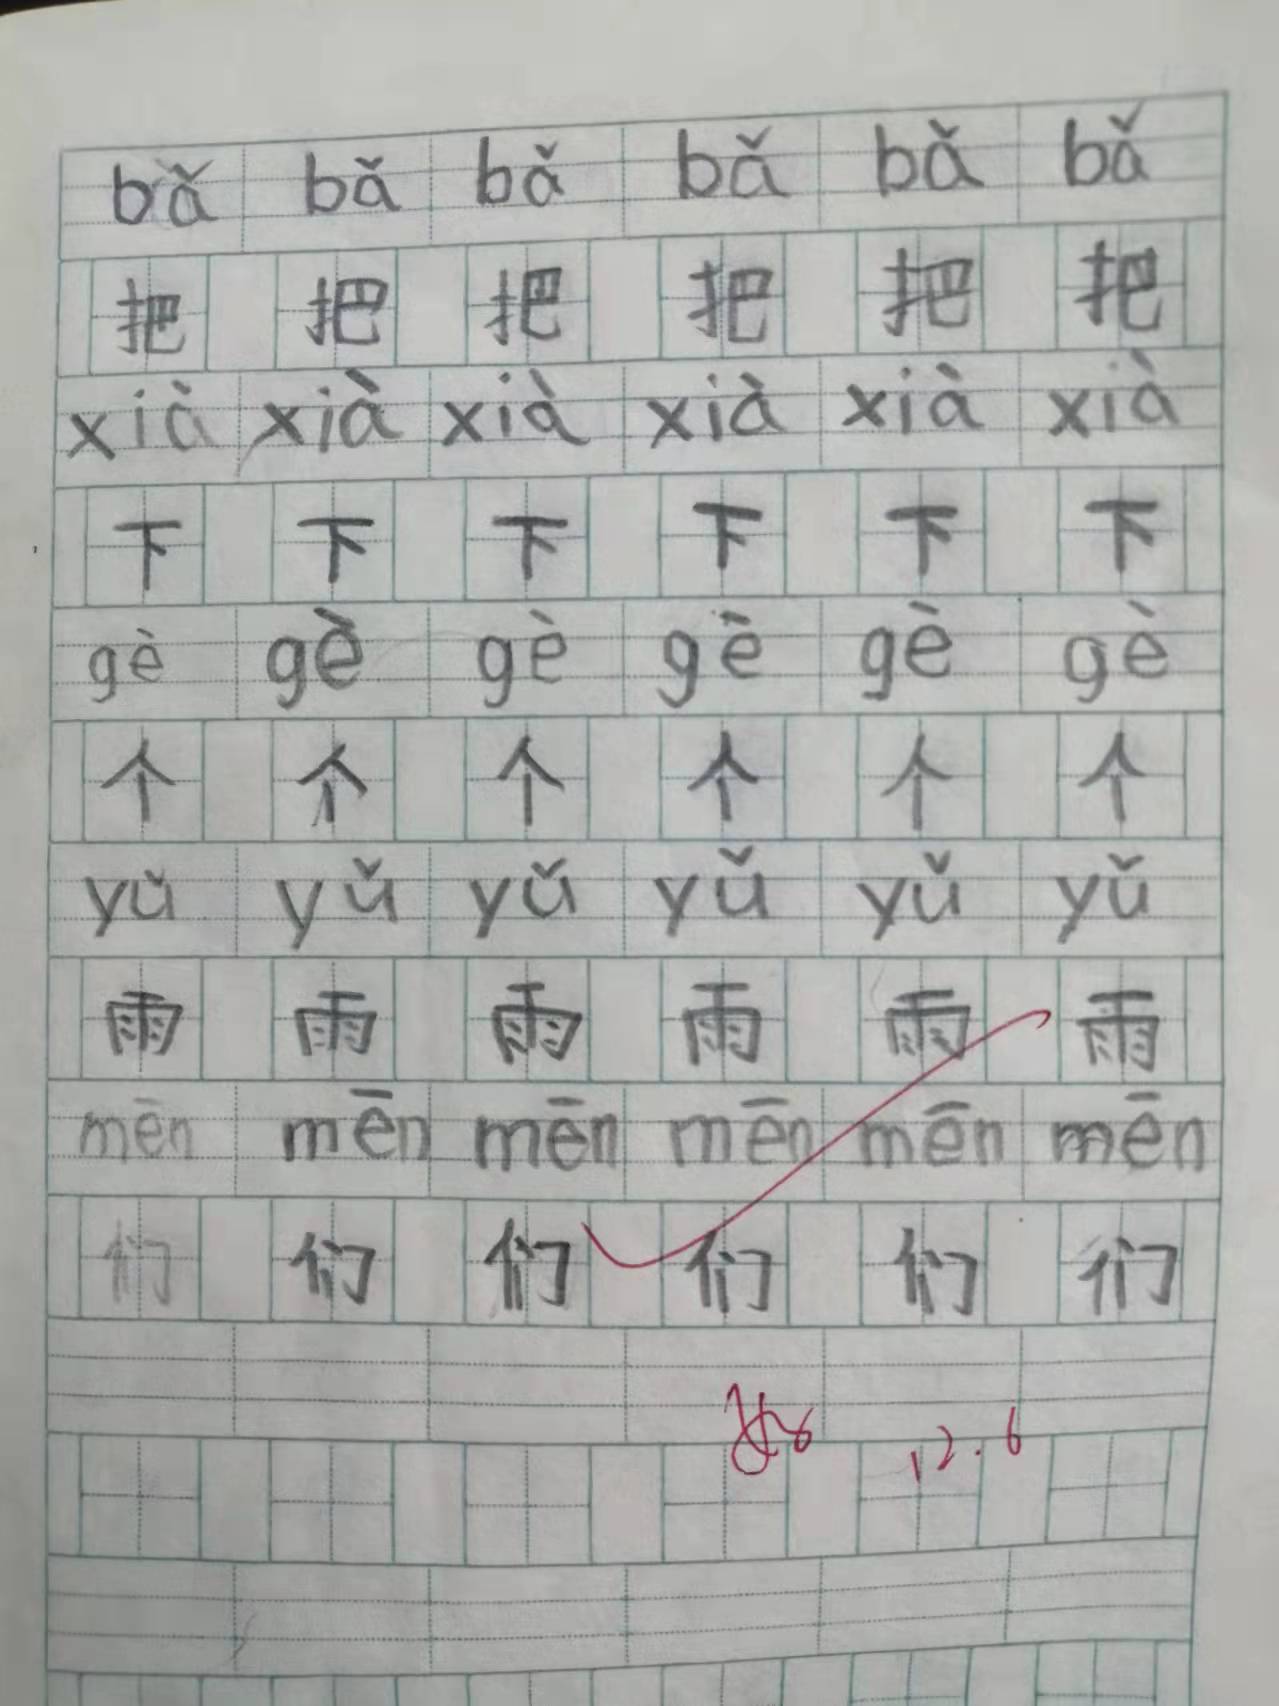 bǎ bǎ bǎ bǎ bǎ bǎ
把 把 把 把 把 把
xià xià xià xià xià xià
下 下 下 下 下 下
gè gè gè gè gè gè
个 个 个 个 个 个
yǔ yǔ yǔ yǔ yǔ yǔ
雨 雨 雨 雨 雨 雨
mēn mēn mēn mēn mēn mēn
们 们 们 们 们 们
12.6